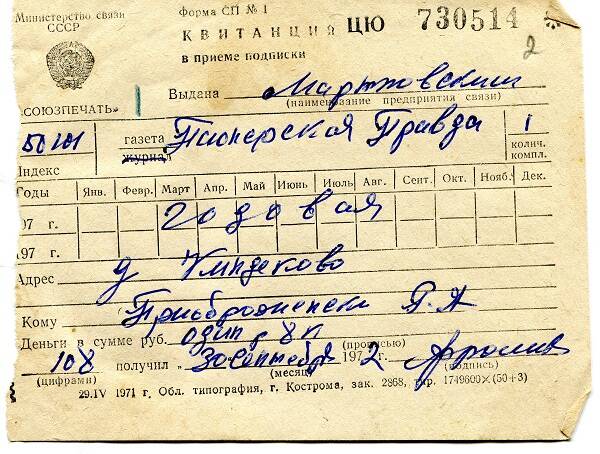 Министерство связи
СССР
Форма СП № 1
КВИТАНЦИЯ ЦЮ 730514
2
в приеме подписки
Выдана
(наименование предприятия связи)
„СОЮЗПЕЧАТЬ"
50101
Индекс
газета
журнал
Пионерская Правда
1
колич.
компл.
Годы Янв. Февр. Март Апр. Май Июнь Июль Авг. Сент. Окт. Нояб. Дек.
197 г.
годовая
197 г.
Адрес д
Кому П. А
Деньги в сумме руб. один р 8 к
(прописью)
108 получил 30 сентября 197 2
(цифрами) (месяц) (подпись)
29.IV 1971 г. Обл. типография, г. Кострома, зак. 2868, тир. 1749600×(50+3)